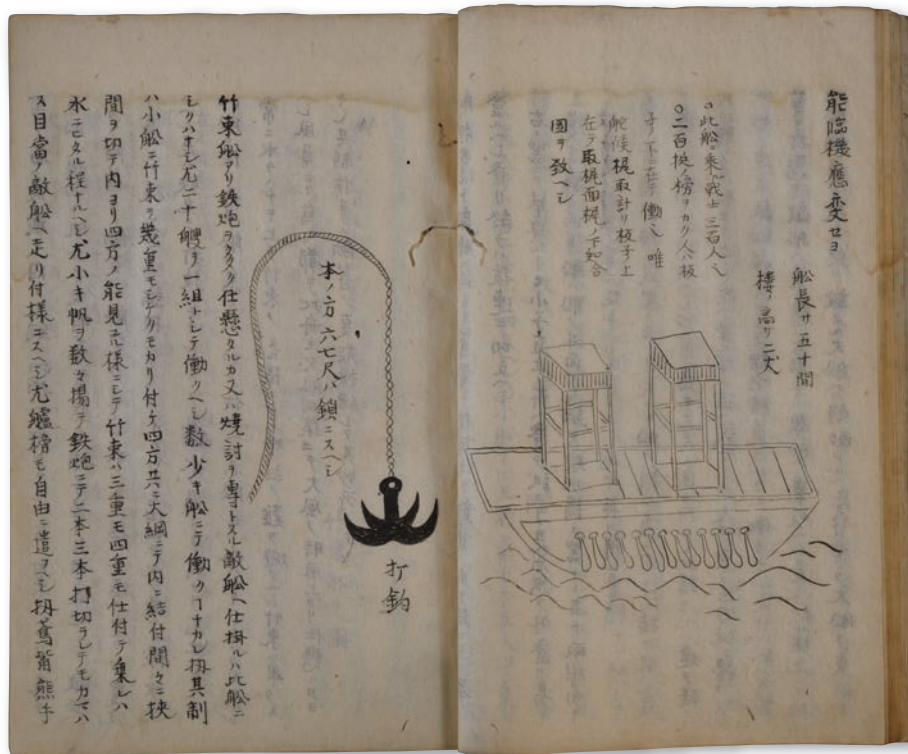 能臨機應変セヨ
船長サ五十間
樓ノ高サ二丈
○此船ニ乘ル戰士三百人也
○二百挺ノ榜ヲカク人ハ板
子ノ下ニ在テ働ヘシ唯
舵候梶取計リ板子上ニ
在テ取梶面梶ノ下知合
圖ヲ致ヘシ
本ノ方六七尺ハ鎖ニスヘシ
打鈎
竹束船アリ鉄炮ヲ仕懸タルカ又ハ焼討ヲ専トスル敵船ヘ仕掛ルハ此船ニ
シクハナシ尤二十艘ヲ一組トシテ働クヘシ数少キ船ニテ働クヿナカレ扨其制
ハ小船ニ竹束ヲ幾重モ付テ四方共ニ大綱ニテ内ニ結付間々ニ挟
間ヲ切テ内ヨリ四方ノ能見ユル様ニシテ竹束ハ三重モ四重モ仕付テ乗レハ
水ニヒタル程ナルヘシ尤小キ帆ヲ数々揚テ鉄炮ニテ二本三本打切ラレテモカマハ
ス目當ノ敵船ヘ走リ付様ニスヘシ尤艫榜モ自由ニ遣フヘシ扨鳶觜熊手